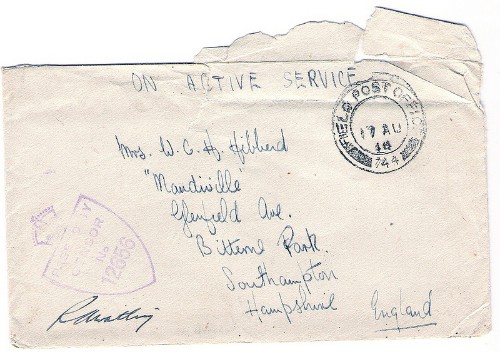 ON ACTIVE SERVICE
FIELD POST OFFICE
17 AU
744
Mrs. W. C. H. Hibberd
"Mandiville"
Glenfield Ave.
Bitterne Park.
Southampton
Hampshire England
CENSOR
No
12666